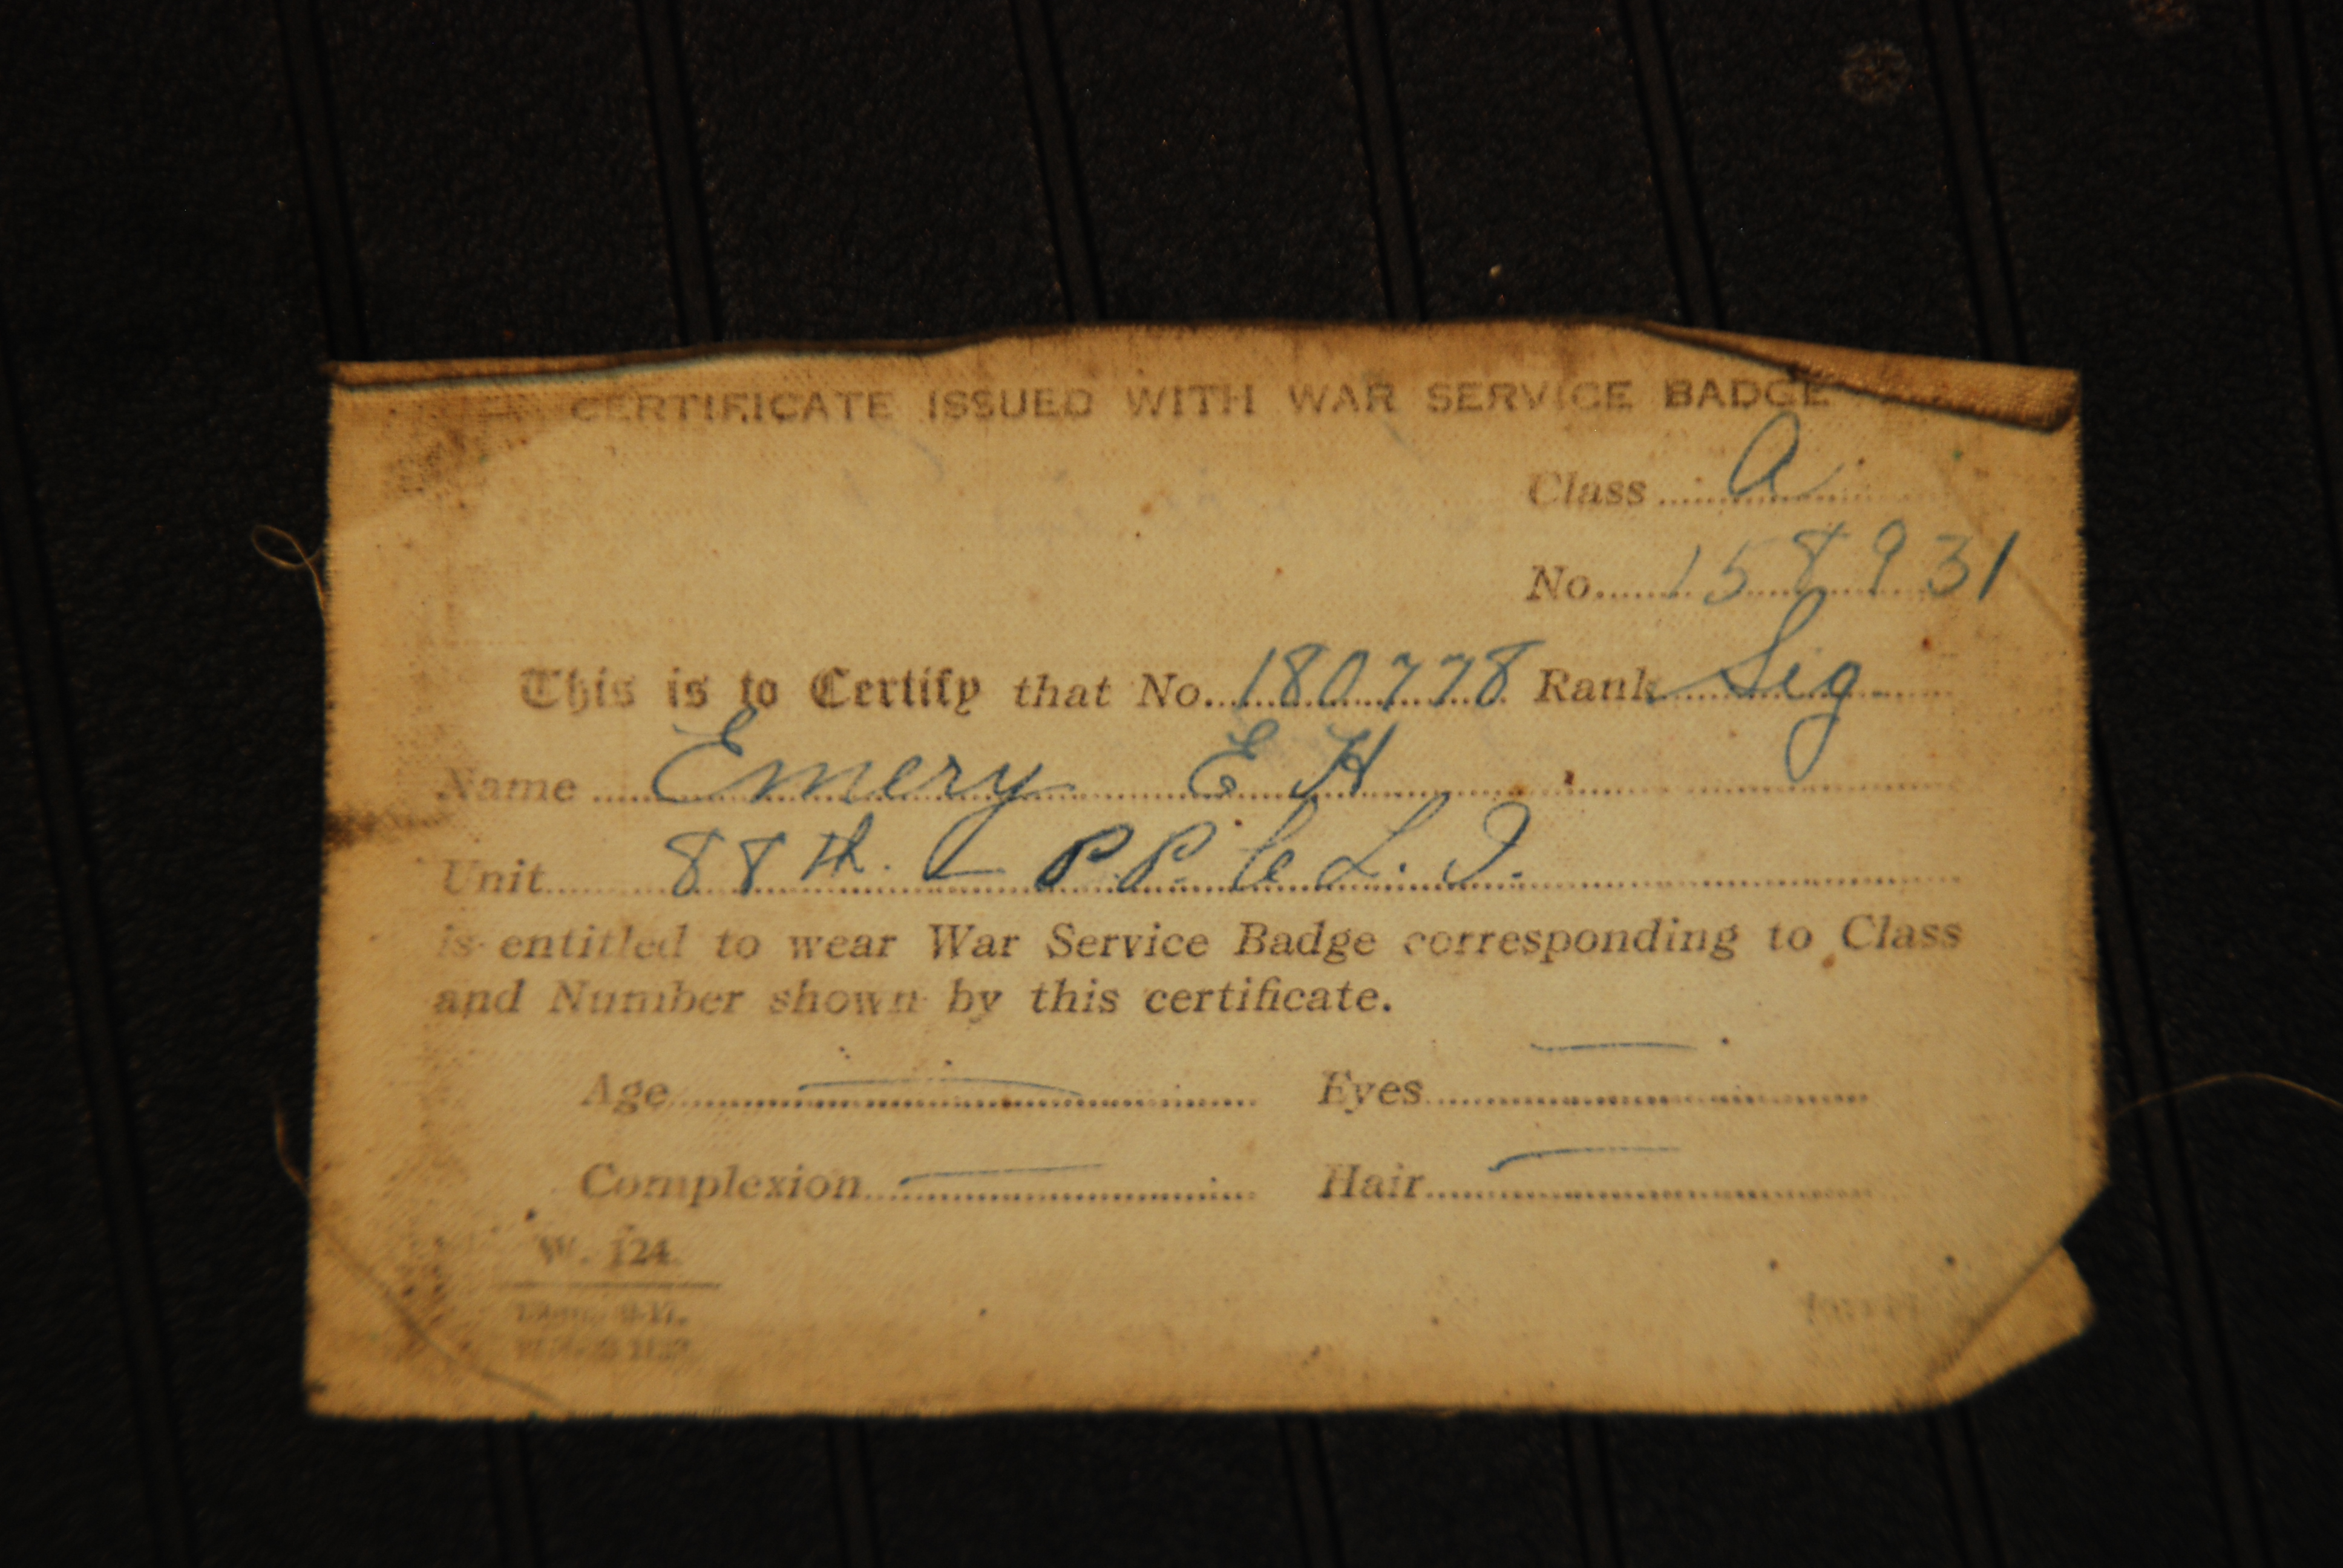 CERTIFICATE ISSUED WITH WAR SERVICE BADGE
Class A
No. 158931
This is to Certify that No. 180778 Rank Sig
Name Emery E H
Unit 88th. - P.P.C.L.I.
is entitled to wear War Service Badge corresponding to Class
and Number shown by this certificate.
Age — Eyes —
Complexion — Hair —
W. 124